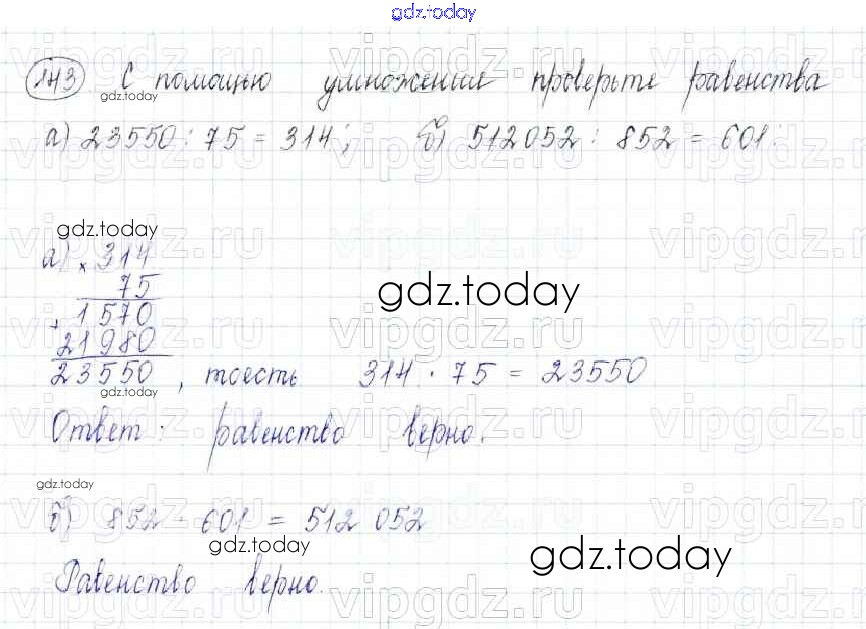 gdz.today
143 С помощью умножения проверьте равенства
gdz.today
а) 23550 : 75 = 314; б) 512052 : 852 = 601.
gdz.today
а) × 314
75
gdz.today
+ 1570
21980
23550, тоесть 314 · 75 = 23550
gdz.today
Ответ: равенство верно.
gdz.today
б) 852 · 601 = 512 052
gdz.today
gdz.today
Равенство верно.
vipgdz.ru